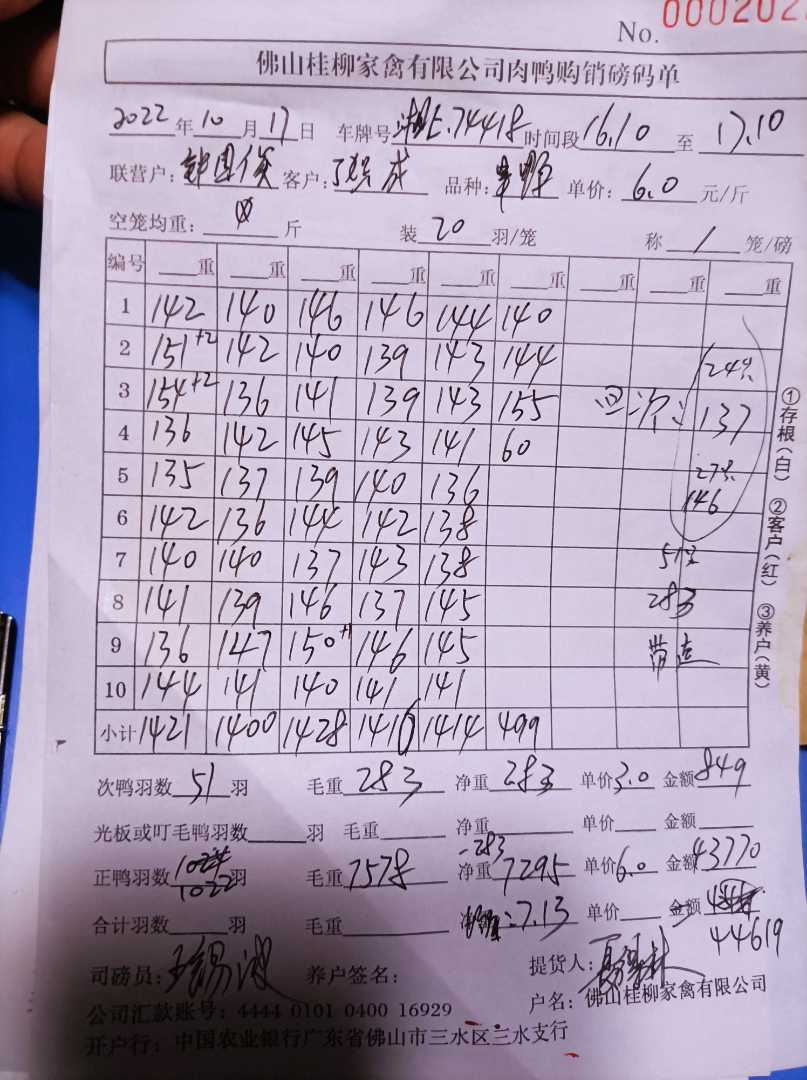 No. 000202
佛山桂柳家禽有限公司肉鸭购销磅码单
2022年10月17日 车牌号 74418 时间段16.10至17.10
联营户: 客户: 成 品种: 单价:6.0元/斤
空笼均重: 0 斤 装20羽/笼 称1笼/磅
编号 重 重 重 重 重 重 重 重 重
1 142 140 146 146 144 140
2 151+2 142 140 139 143 144 24只
3 154+2 136 141 139 143 155 137
4 136 142 145 143 141 60
5 135 137 139 140 136 27只
146
6 142 136 144 142 138
7 140 140 137 143 138 51只
8 141 139 146 137 145 283
9 136 147 150+1 146 145
10 144 141 140 141 141
小计 1421 1400 1428 1416 1414 499
①存根(白) ②客户(红) ③养户(黄)
次鸭羽数51羽 毛重283 净重283 单价3.0 金额849
光板或叮毛鸭羽数 羽 毛重 净重 单价 金额
-283
正鸭羽数1022羽 毛重7578 净重7295 单价6.0 金额43770
合计羽数 羽 毛重 :7.13 单价 金额
44619
司磅员: 养户签名: 提货人:
公司汇款账号: 4444 0101 0400 16929 户名: 佛山桂柳家禽有限公司
开户行: 中国农业银行广东省佛山市三水区三水支行